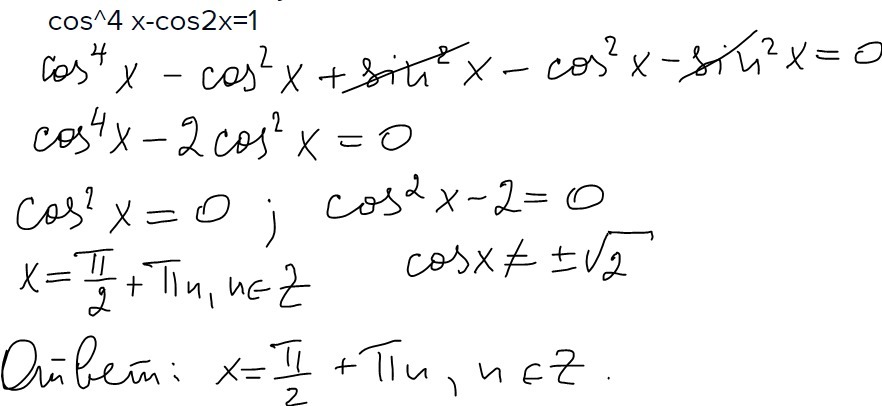 cos^4 x-cos2x=1
cos⁴ x − cos² x + sin² x − cos² x − sin² x = 0
cos⁴x − 2 cos² x = 0
cos² x = 0 ; cos² x − 2 = 0
x = π/2 + πn, n∈Z cosx ≠ ±√2
Ответ: x = π/2 + πn, n∈Z.